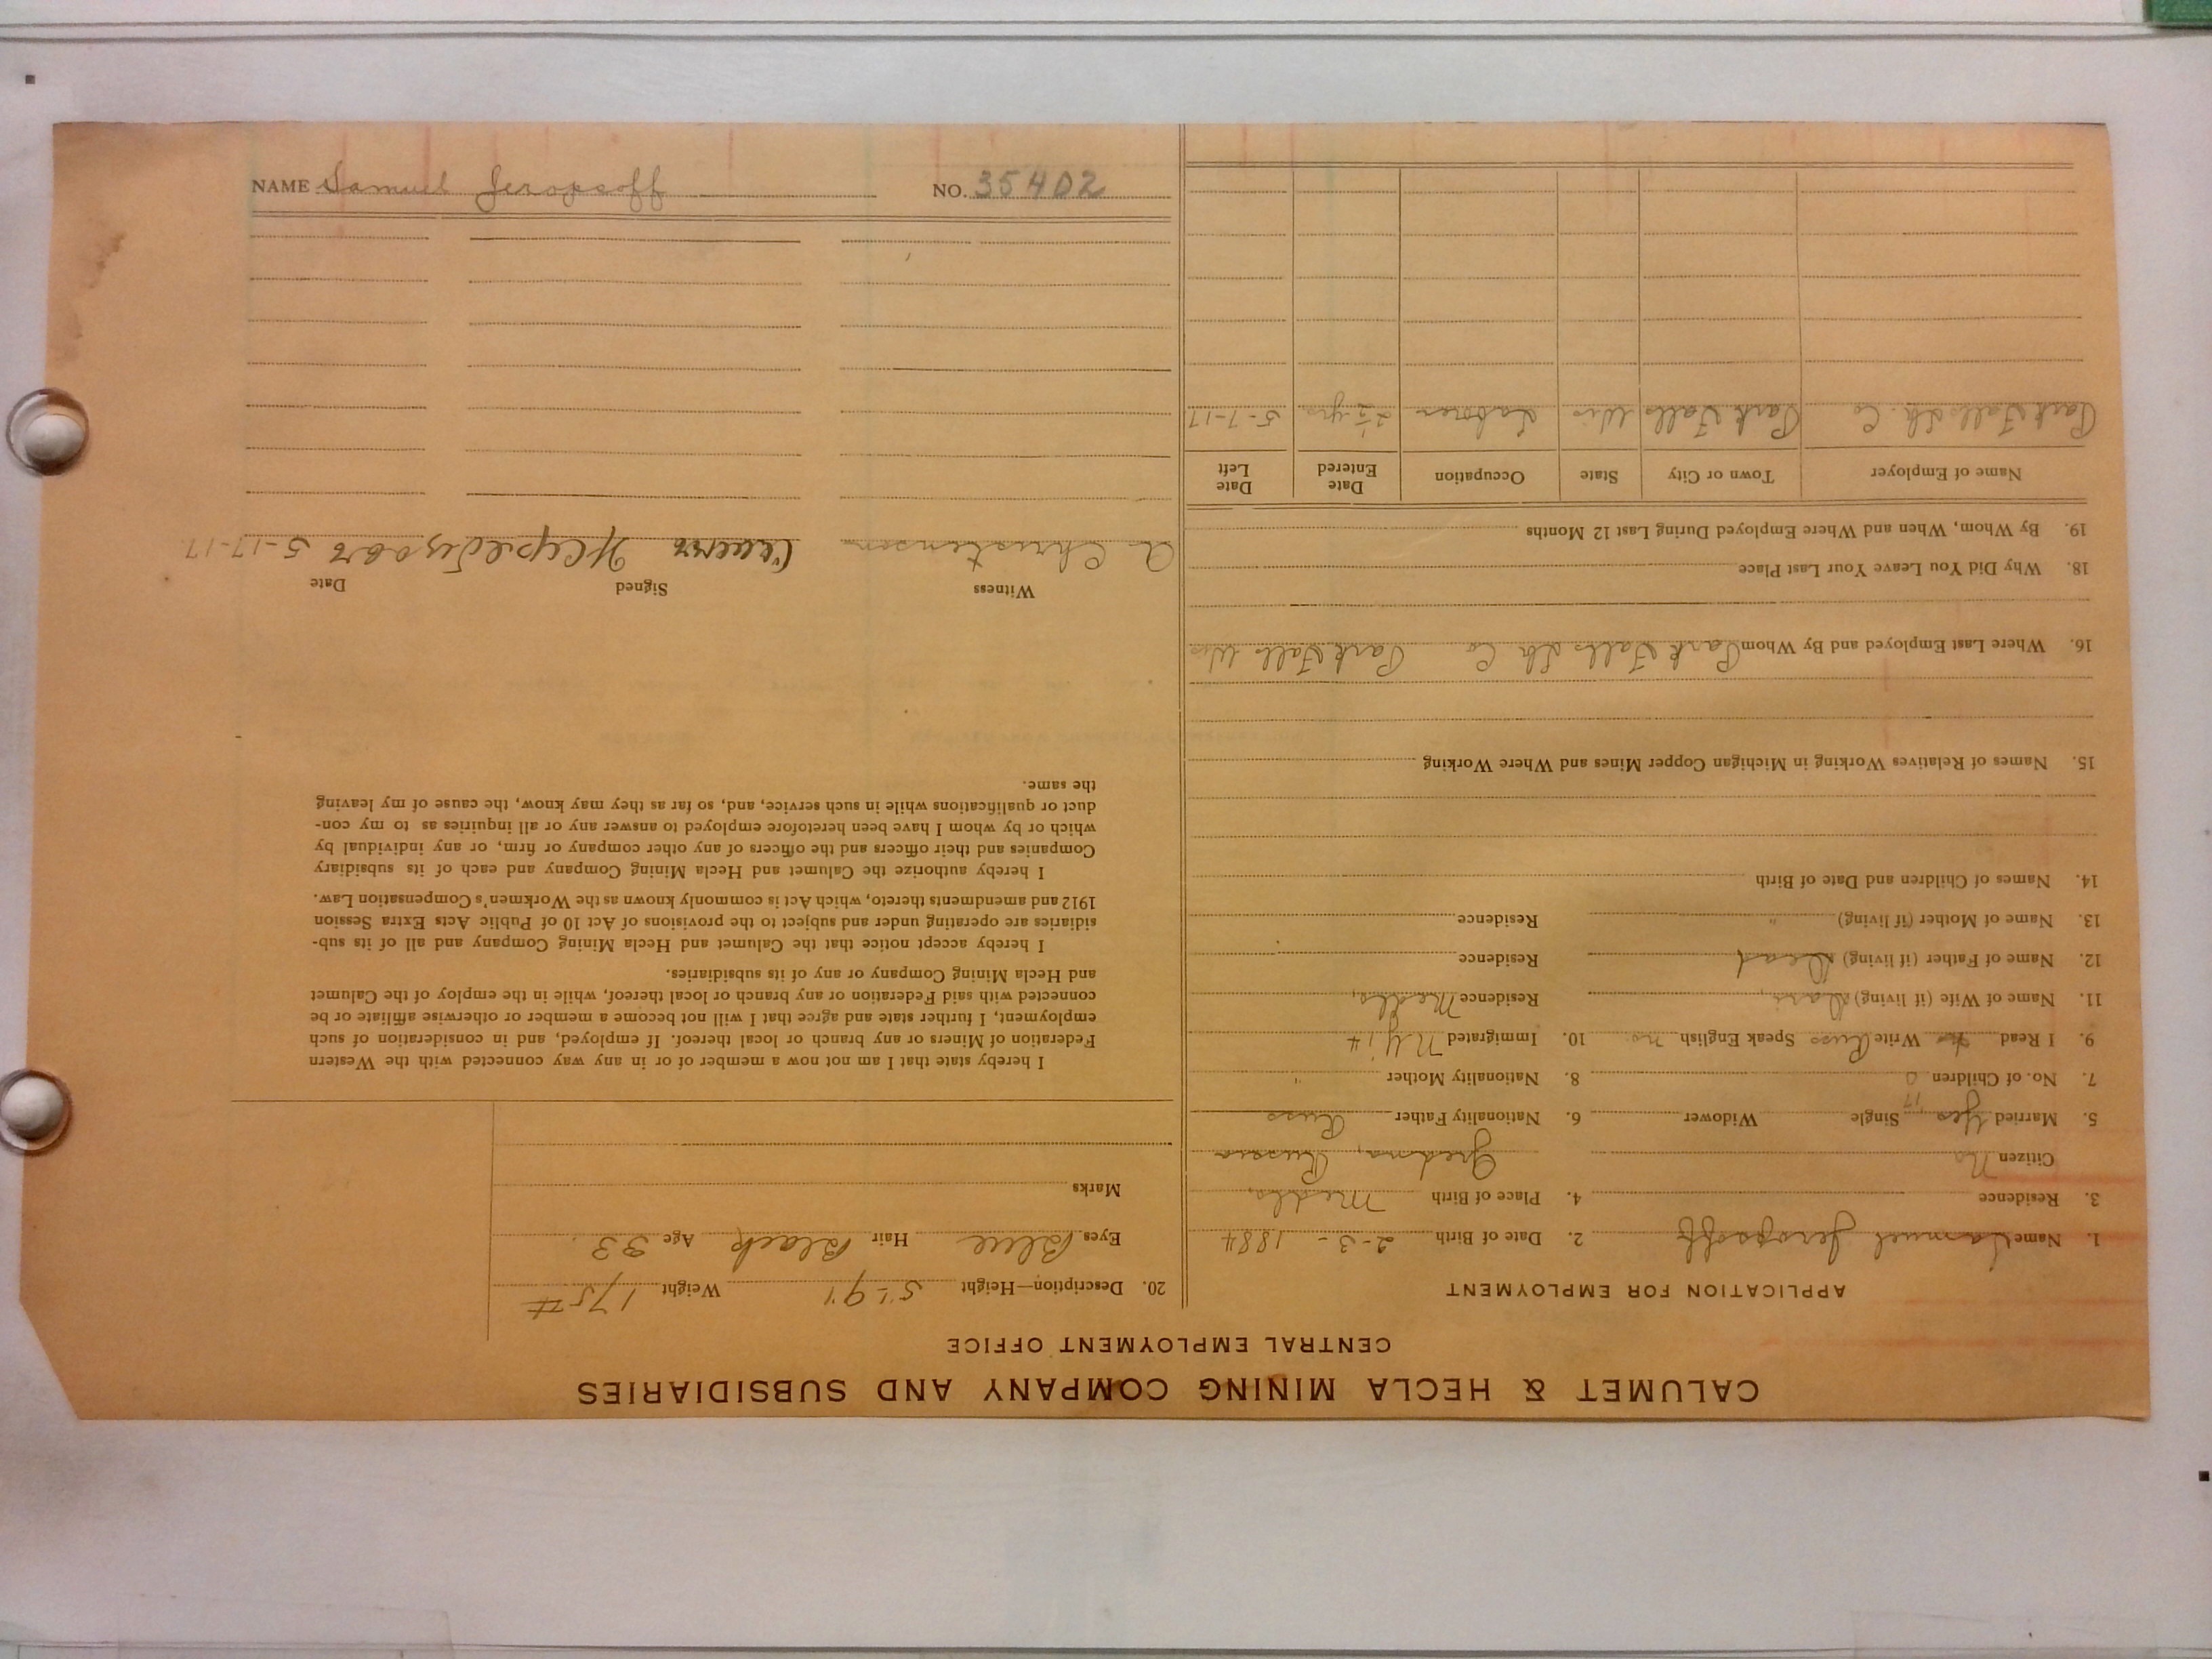 CALUMET & HECLA MINING COMPANY AND SUBSIDIARIES
CENTRAL EMPLOYMENT OFFICE
APPLICATION FOR EMPLOYMENT
1. Name Samuel Jeropsoff 2. Date of Birth 2-3- 1884
3. Residence 4. Place of Birth
Citizen No Russia
5. Married Yes 17 Single Widower 6. Nationality Father Russ
7. No. of Children 0 8. Nationality Mother "
9. I Read Write Russ Speak English no 10. Immigrated N.Y. 14
11. Name of Wife (if living) Residence
12. Name of Father (if living) Dead Residence
13. Name of Mother (if living) " Residence
14. Names of Children and Date of Birth
15. Names of Relatives Working in Michigan Copper Mines and Where Working
16. Where Last Employed and By Whom Park Falls Lbr. Co Park Falls Wis
18. Why Did You Leave Your Last Place
19. By Whom, When and Where Employed During Last 12 Months
Name of Employer Town or City State Occupation Date Entered Date Left
Park Falls Lbr. Co Park Falls Wis Laborer 2½ yrs 5-7-17
20. Description—Height 5'-9" Weight 175#
Eyes Blue Hair Black Age 33
Marks
I hereby state that I am not now a member of or in any way connected with the Western
Federation of Miners or any branch or local thereof. If employed, and in consideration of such
employment, I further state and agree that I will not become a member or otherwise affiliate or be
connected with said Federation or any branch or local thereof, while in the employ of the Calumet
and Hecla Mining Company or any of its subsidiaries.
I hereby accept notice that the Calumet and Hecla Mining Company and all of its sub-
sidiaries are operating under and subject to the provisions of Act 10 of Public Acts Extra Session
1912 and amendments thereto, which Act is commonly known as the Workmen's Compensation Law.
I hereby authorize the Calumet and Hecla Mining Company and each of its subsidiary
Companies and their officers and the officers of any other company or firm, or any individual by
which or by whom I have been heretofore employed to answer any or all inquiries as to my con-
duct or qualifications while in such service, and, so far as they may know, the cause of my leaving
the same.
Witness Signed Date
A Christensen 5-17-17
NAME Samuel Jeropsoff NO. 35402